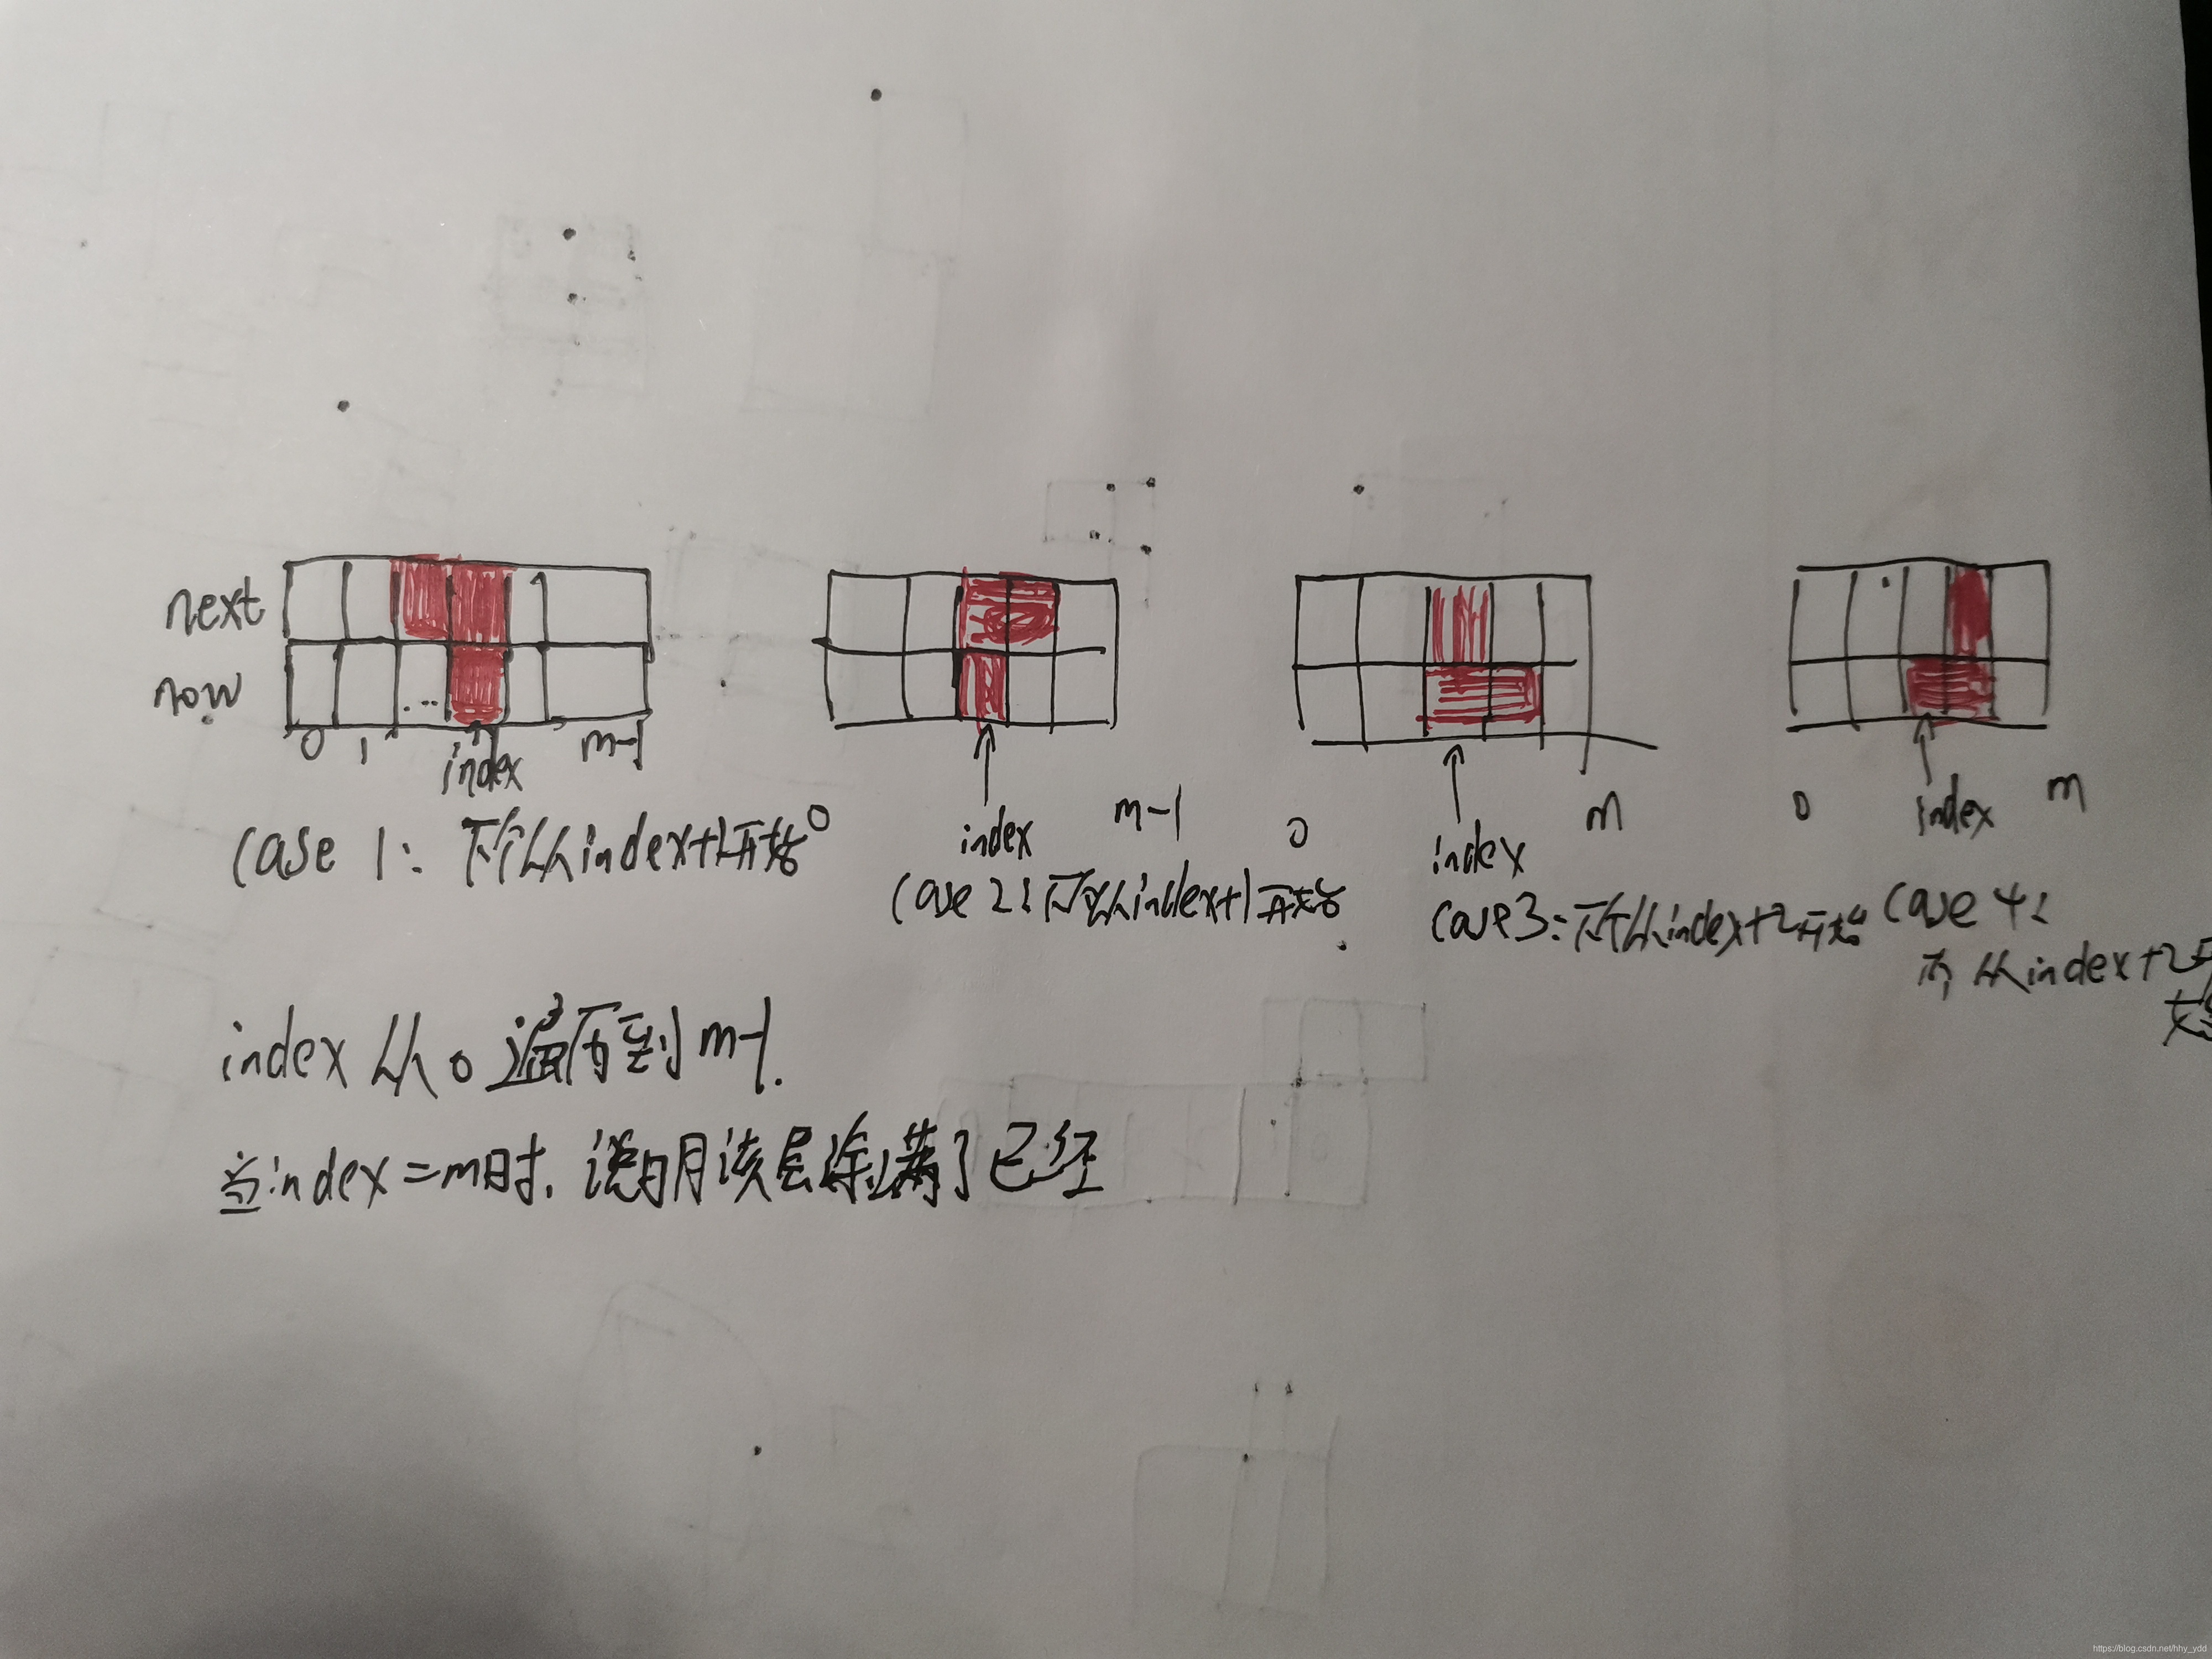 next
now
...
0 1 index m-1
index m-1
0 index m
0 index m
case 1: 下个从index+1开始
case 2: 下个从index+1开始
case 3: 下个从index+2开始
case 4:
下个从index+2开
始
index 从 0 遍历到 m-1.
当index=m时. 说明该层涂满了已经
https://blog.csdn.net/hhy_ydd